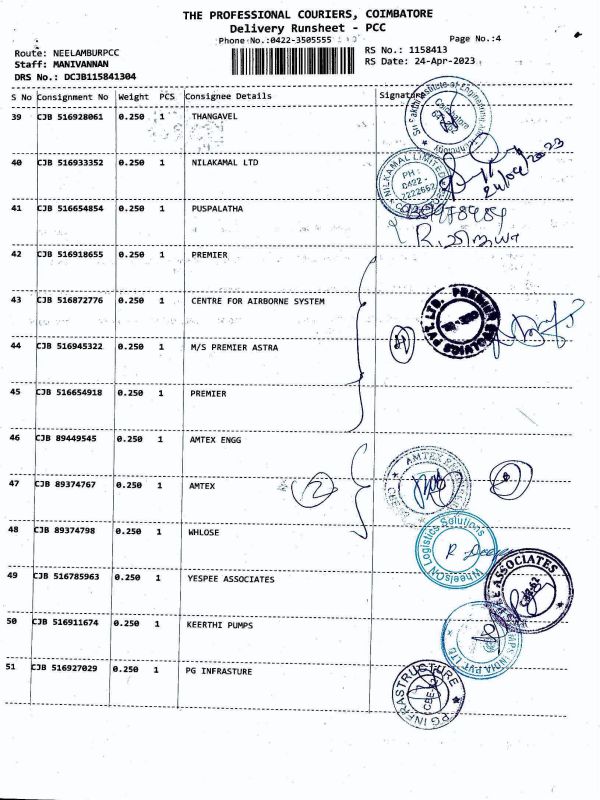 THE PROFESSIONAL COURIERS, COIMBATORE
Delivery Runsheet - PCC
Phone No.:0422-3505555
Page No.:4
Route: NEELAMBURPCC
RS No.: 1158413
Staff: MANIVANNAN
RS Date: 24-Apr-2023
DRS No.: DCJB115841304
S No Consignment No Weight PCS Consignee Details Signature
39 CJB 516928061 0.250 1 THANGAVEL
40 CJB 516933352 0.250 1 NILAKAMAL LTD
NILKAMAL LIMITED
PH :
0422 -
2222662
24/04/2023
41 CJB 516654854 0.250 1 PUSPALATHA
42 CJB 516918655 0.250 1 PREMIER
43 CJB 516872776 0.250 1 CENTRE FOR AIRBORNE SYSTEM
PREMIER EVOLVICS PVT. LTD.
44 CJB 516945322 0.250 1 M/S PREMIER ASTRA
45 CJB 516654918 0.250 1 PREMIER
46 CJB 89449545 0.250 1 AMTEX ENGG
47 CJB 89374767 0.250 1 AMTEX
2
48 CJB 89374798 0.250 1 WHLOSE
WheelsON Logistics Solutions
49 CJB 516785963 0.250 1 YESPEE ASSOCIATES
ASSOCIATES
50 CJB 516911674 0.250 1 KEERTHI PUMPS
INDIA PVT LTD
51 CJB 516927029 0.250 1 PG INFRASTURE
PG INFRASTRUCTURE